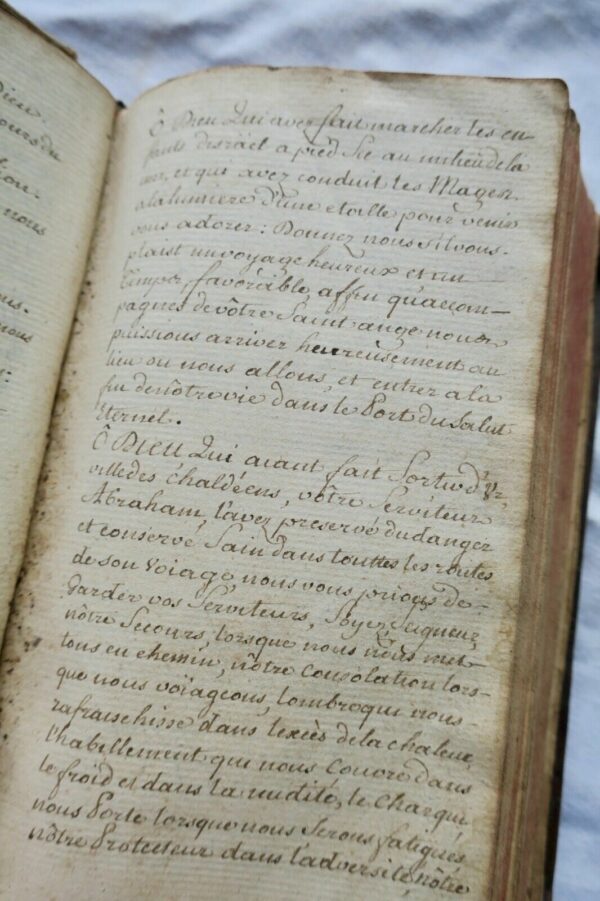 Dieu.
ours du
tion.
nous
us.
nous
:
ô Dieu Qui avez fait marcher les en-
fants disräel a pied Sec au milieu de la
mer, et qui avez conduit les Mages.
a la lumiere d'une etoille pour venir
vous adorer : Donnez nous S'il vous.
plaist un voyage heureux et un
temps favorable, affin qu'accom-
pagnes de vôtre Saint ange nous
puissions arriver heureusement au
lieu ou nous allons, et entrer a la
fin de nôtre vie dans le Port du Salut
Eternel.
Ô Dieu Qui aiant fait Sortir d'Ur,
ville des Chaldéens, vôtre Serviteur
Abraham, l'avez preservé du danger
et conservé Sain dans touttes les routes
de son voiage, nous vous prions de-
garder vos Serviteurs, Soyez Seigneur
nôtre Secours, lorsque nous nous met-
tons en chemin, nôtre Consolation lors-
que nous voiageons, l'ombre qui nous
rafraischisse dans l'excès de la chaleur,
l'habillement qui nous Couvre dans
le froid et dans la nudité, le Char qui
nous Porte lorsque nous Serons fatigués
nôtre Protecteur dans l'adversité, nôtre